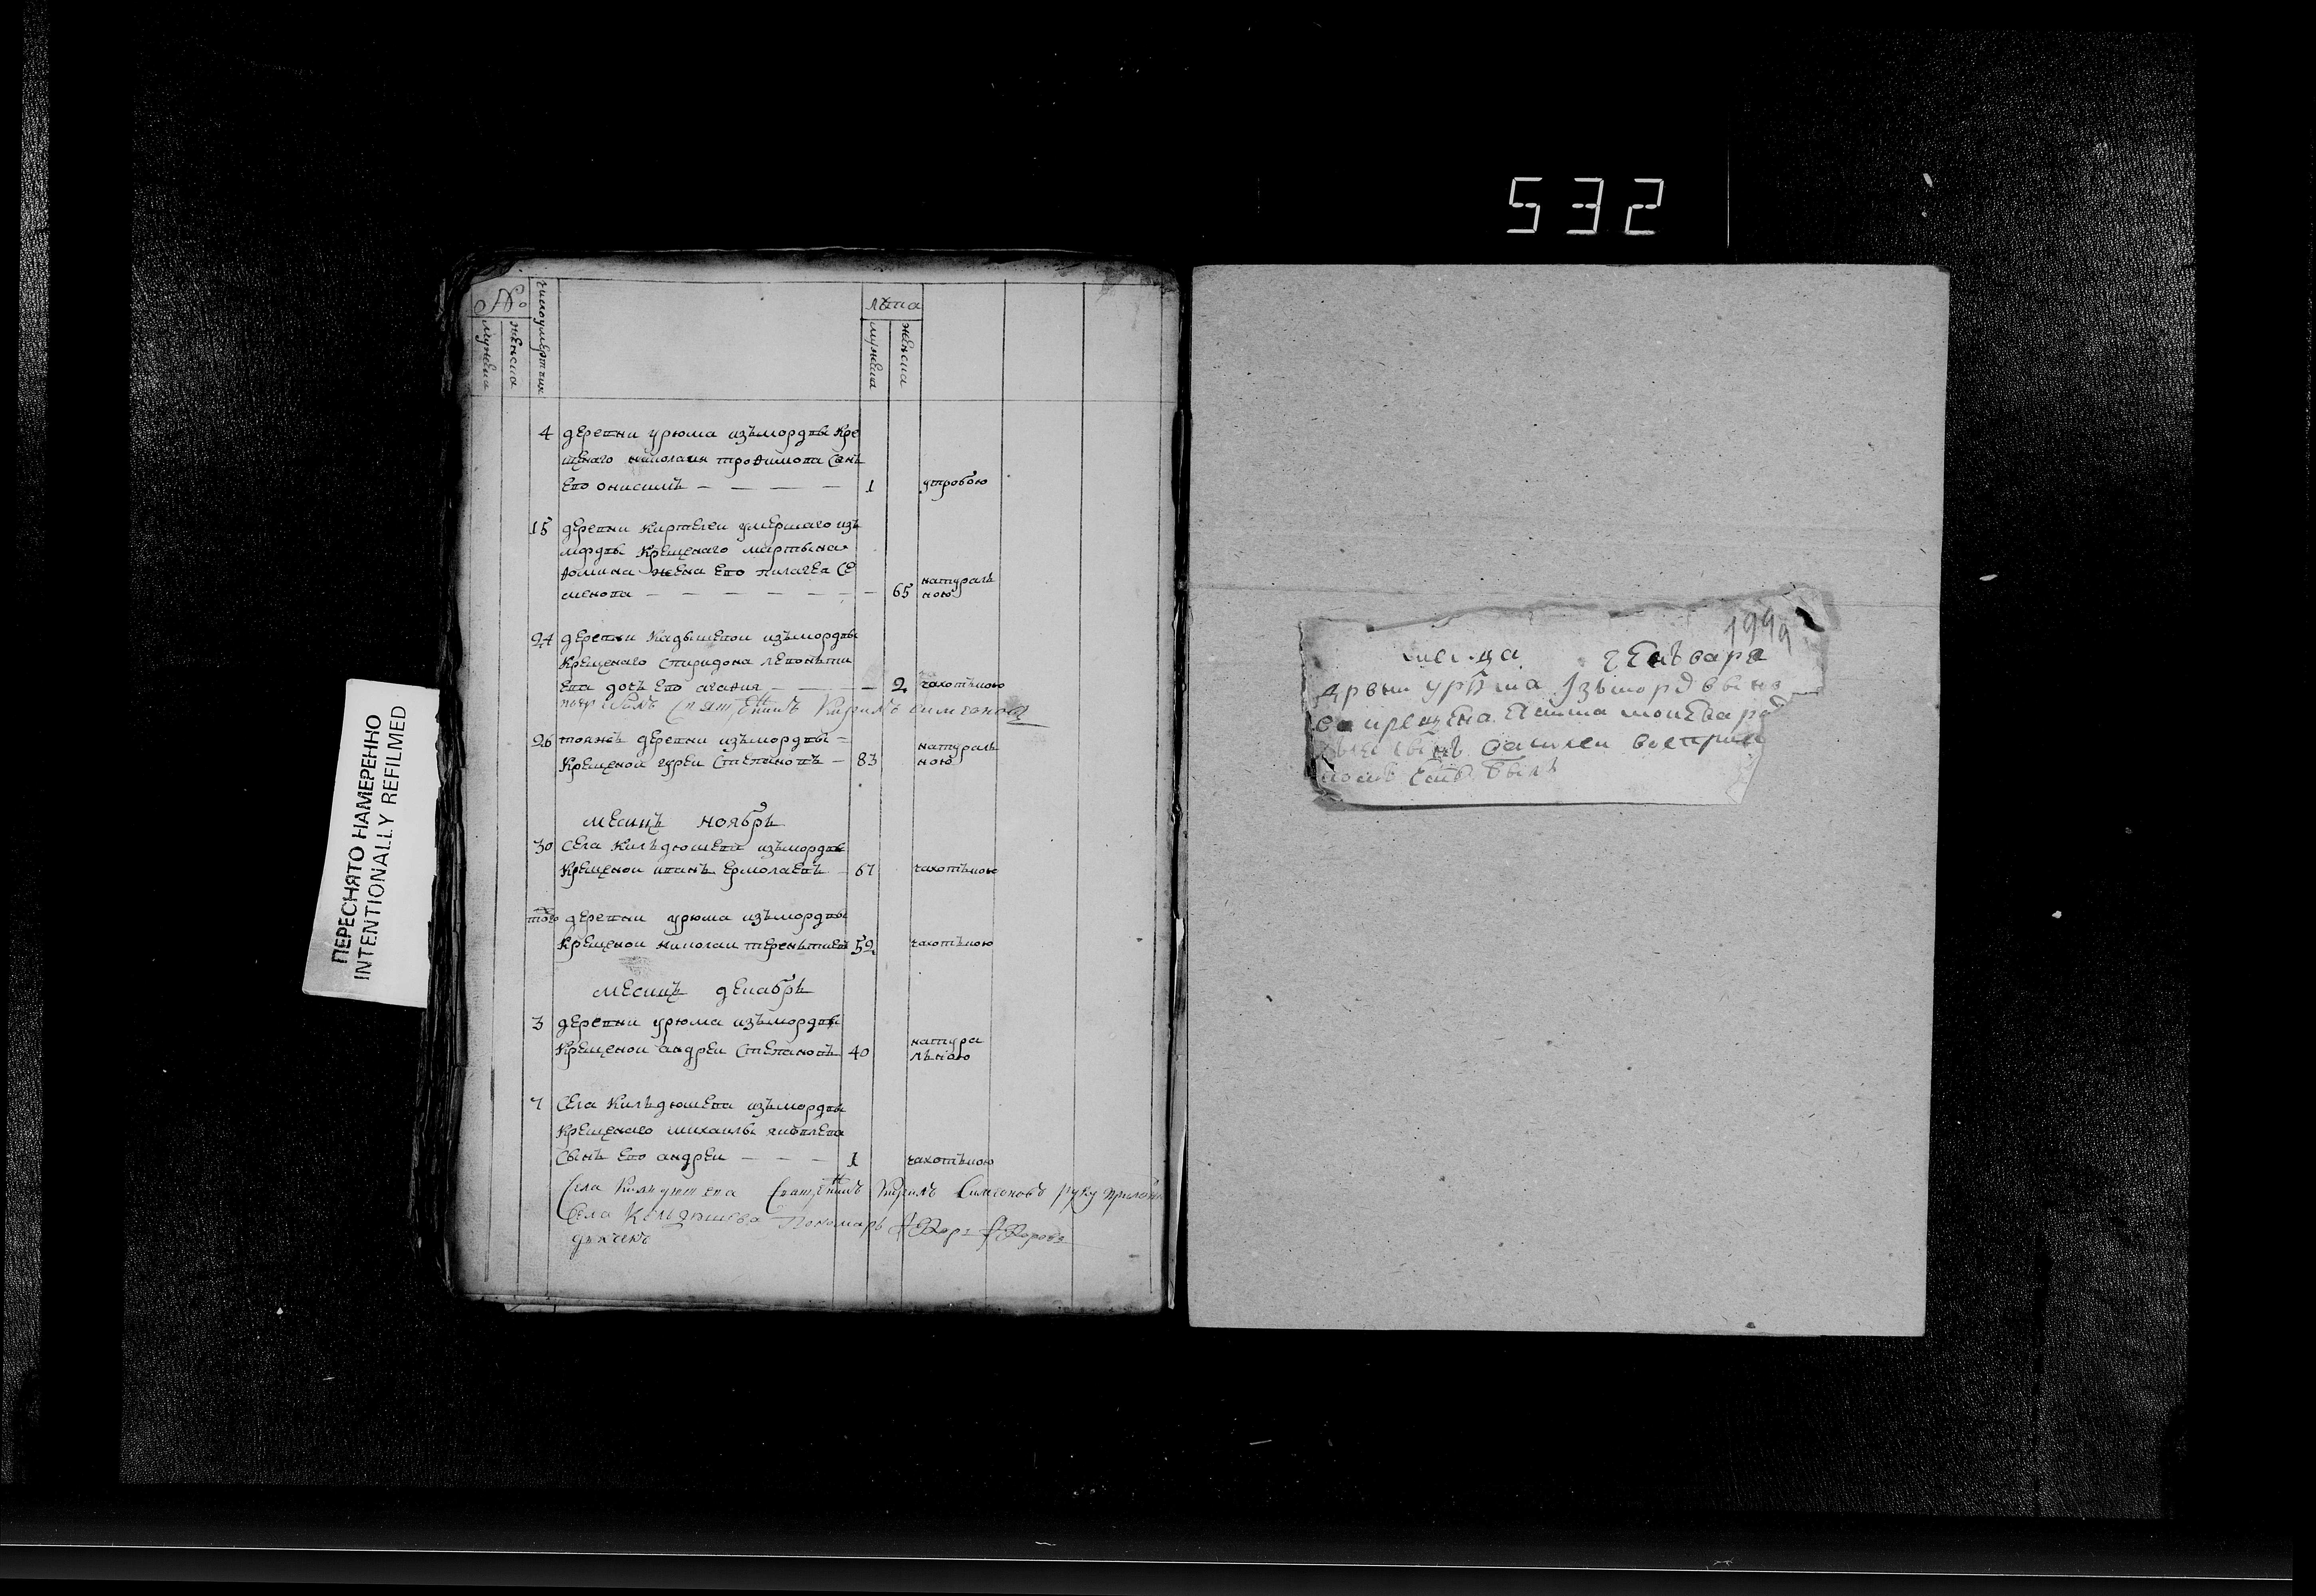 532
ПЕРЕСНЯТО НАМЕРЕННО
INTENTIONALLY REFILMED
№
мужеска
женска
число умертвих
лѣта
мужеска
женска
4 деревни урюма изъ мордвы кре
щенаго николаия трофимова сынъ
ево онисимъ — — — — 1 утробою
15 деревни киртелеи умершаго изъ
мордвы крещенаго мартына
фомина жена ево пилагея се
менова — — — — — — — 65 натураль
ною
24 деревни кадышевои изъ мордвы
крещенаго спиридона левонъти
ева дочь ево агафия — — — 2 чахотъкою
Священникъ Кирилъ Симеоновъ
26 тояжъ деревни изъ мордвы =
крещенои гуреи степановъ — 83 натураль
ною
месицъ ноябрь
30 села килъдюшева изъ мордвы
крещенои иванъ ермолаевъ 67 чахотъкою
того деревни урюма изъ мордвы
крещенои николаи терентиевъ 52 чахотъкою
месицъ декабрь
3 деревни урюма изъ мордвы
крещенои андреи степановъ 40 натура
льною
7 села килъдюшева изъ мордвы
крещенаго михаилы
сынъ ево андреи — — — 1 чахотъкою
Села Килдюшева Священникъ Кирилъ Симеоновъ руку приложи
Села Кильдюшева Пономарь
дьячекъ
генъваря
урюма изъ мордвы
сынъ василеи восприи
былъ